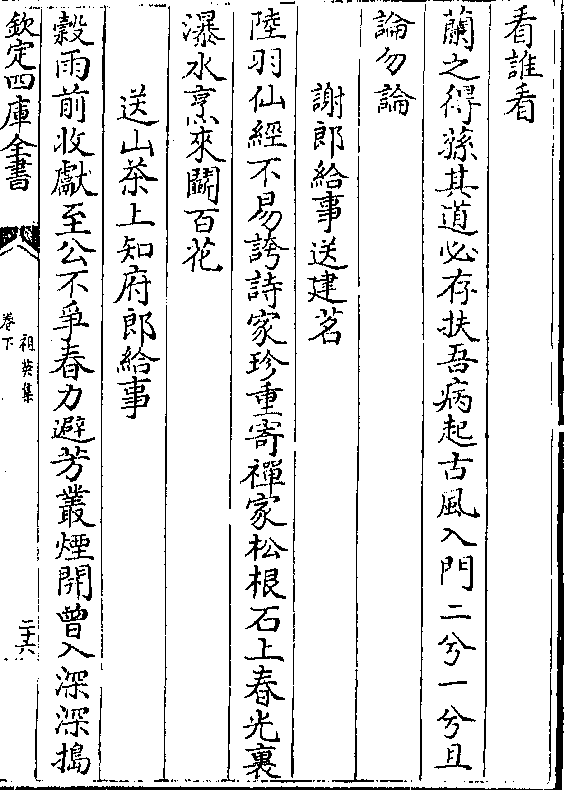 看誰看
蘭之得蓀其道必存扶吾病起古風入門二兮一兮且
論勿論
謝郎給事送建茗
陸羽仙經不易誇詩家珍重寄禪家松根石上春光裏
瀑水烹來鬬百花
送山茶上知府郎給事
穀雨前收獻至公不爭春力避芳叢煙開曾入深深搗
欽定四庫全書
祖英集
卷下
二十六